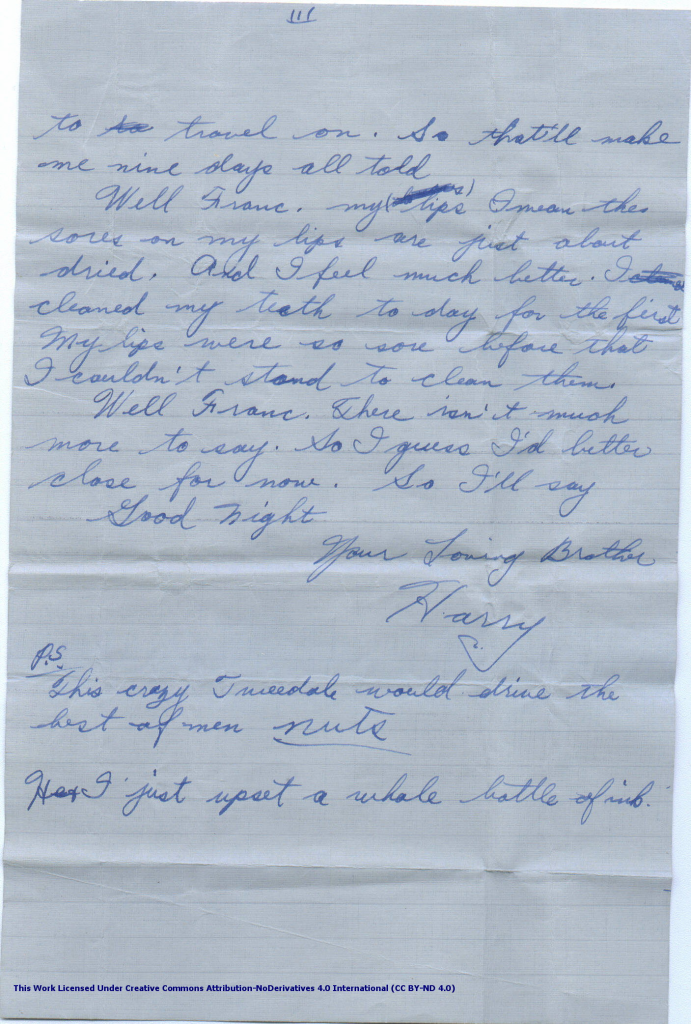 III
to to travel on. So that'll make
me nine days all told
Well Franc. my (lips) I mean the
sores on my lips are just about
dried. And I feel much better. I
cleaned my teeth to day for the first
My lips were so sore before that
I couldn't stand to clean them.
Well Franc. There isn't much
more to say. So I guess I'd better
close for now. So I'll say
Good Night
Your Loving Brother
Harry
P.S.
This crazy Tweedale would drive the
best of men nuts
I just upset a whole bottle of ink.
This Work Licensed Under Creative Commons Attribution-NoDerivatives 4.0 International (CC BY-ND 4.0)